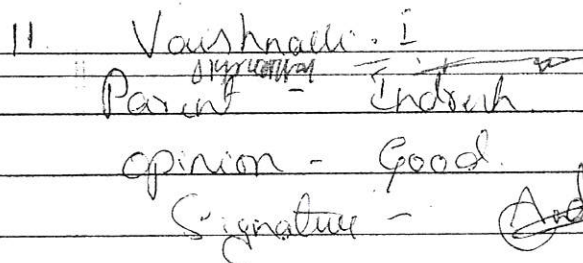 11 Vaishnavi. I
Parent - Indresh
opinion - Good.
Signature -